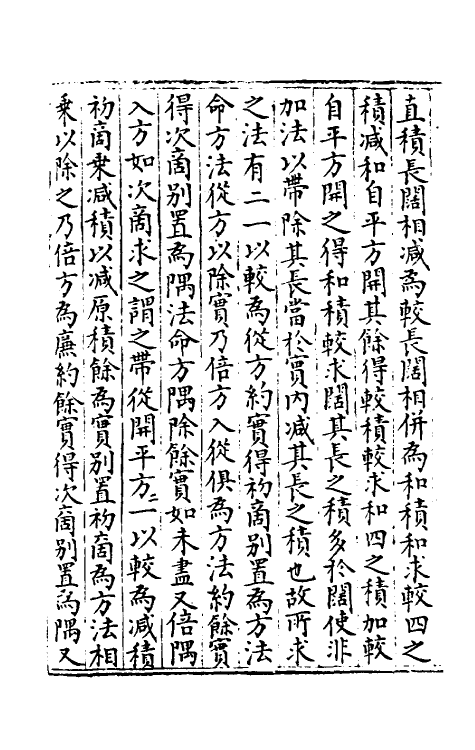 直積長闊相减為較長闊相併為和積和求較四之
積减和自平方開其餘得較積較求和四之積加較
自平方開之得和積較求闊其長之積多於闊使非
加法以帶除其長當於實内减其長之積也故所求
之法有二一以較為從方約實得初啇别置為方法
命方法從方以除實乃倍方入從俱為方法約餘實
得次啇别置為隅法命方隅除餘實如未盡又倍隅
入方如次啇求之謂之帶從開平方二一以較為减積
初啇乗减積以减原積餘為實别置初啇為方法相
乗以除之乃倍方為亷約餘實得次啇别置為隅又